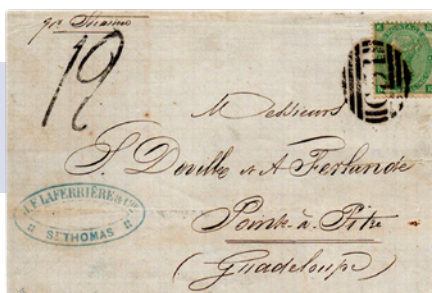 per Steamer
12
Messieurs
S. Deville et A Ferlande
Pointe-à-Pitre
(Guadeloupe)
J. F. LAFERRIÈRE & Cie
ST THOMAS
C51